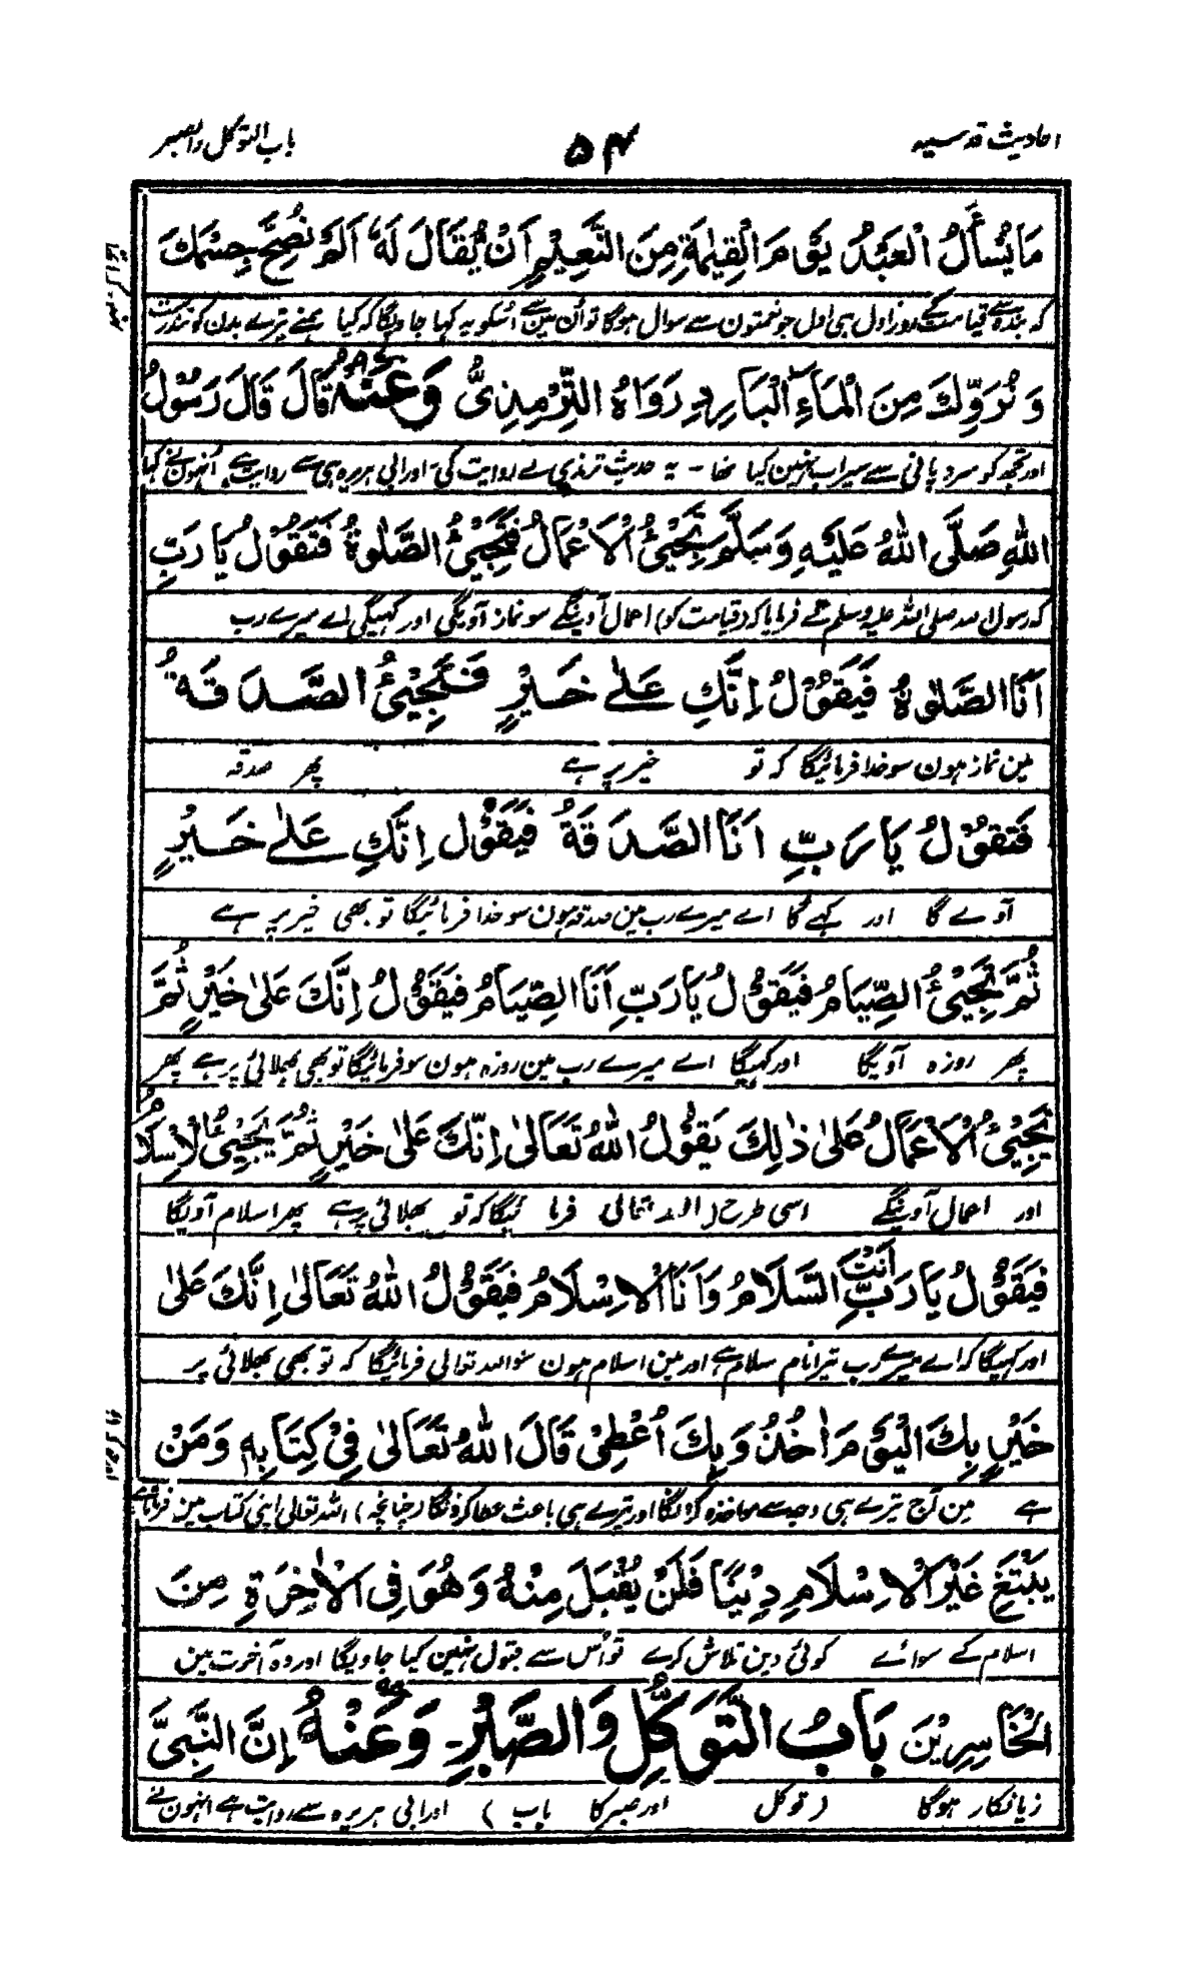 احادیث قدسیہ ۵۴ باب التوکل والصبر
مَا يُسْأَلُ الْعَبْدُ يَوْمَ الْقِيٰمَةِ مِنَ النَّعِيْمِ اَنْ يُّقَالَ لَهٗ اَلَمْ نُصِحَّ جِسْمَكَ
کہ بندہ سے قیامت کے روز اول ہی اول جو نعمتون سے سوال ہوگا تو اُن مین سے اُسکو یہ کہا جاویگا کہ کیا ہمنے تیرے بدن کو تندرست
وَ نُرَوِّكَ مِنَ الْمَاءِ الْبَارِدِ رَوَاهُ التِّرْمِذِىُّ وَعَنْهُ قَالَ قَالَ رَسُوْلُ
اور تجھ کو سرد پانی سے سیراب نہین کیا تھا - یہ حدیث ترمذی نے روایت کی اور ابی ہریرہ ہی سے روایت ہے اُنہون نے کہا
اللهِ صَلَّى اللهُ عَلَيْهِ وَسَلَّمَ تَجِيْئُ الْاَعْمَالُ فَتَجِيْئُ الصَّلٰوةُ فَتَقُوْلُ يَا رَبِّ
کہ رسول اللہ صلی اللہ علیہ وسلم نے فرمایا کہ (قیامت کو) اعمال آوینگے سو نماز آویگی اور کہیگی اے میرے رب
اَنَا الصَّلٰوةُ فَيَقُوْلُ اِنَّكِ عَلٰے خَيْرٍ فَتَجِيْئُ الصَّدَقَةُ
مین نماز ہون سو خدا فرمائیگا کہ تو خیر پر ہے پھر صدقہ
فَتَقُوْلُ يَا رَبِّ اَنَا الصَّدَقَةُ فَيَقُوْلُ اِنَّكِ عَلٰے خَيْرٍ
آوے گا اور کہے گا اے میرے رب مین صدقہ ہون سو خدا فرمائیگا تو بھی خیر پر ہے
ثُمَّ يَجِيْئُ الصِّيَامُ فَيَقُوْلُ يَا رَبِّ اَنَا الصِّيَامُ فَيَقُوْلُ اِنَّكَ عَلٰى خَيْرٍ ثُمَّ
پھر روزہ آویگا اور کہیگا اے میرے رب مین روزہ ہون سو فرمائیگا تو بھی بھلائی پر ہے پھر
تَجِيْئُ الْاَعْمَالُ عَلٰى ذٰلِكَ يَقُوْلُ اللهُ تَعَالٰى اِنَّكَ عَلٰى خَيْرٍ ثُمَّ يَجِيْئُ الْاِسْلَامُ
اور اعمال آوینگے اسی طرح اللہ تعالی فرمائیگا کہ تو بھلائی پر ہے پھر اسلام آویگا
فَيَقُوْلُ يَا رَبِّ اَنْتَ السَّلَامُ وَاَنَا الْاِسْلَامُ فَيَقُوْلُ اللهُ تَعَالٰى اِنَّكَ عَلٰى
اور کہیگا کہ اے میرے رب تیرا نام سلام ہے اور مین اسلام ہون سو اللہ تعالی فرمائیگا کہ تو بھی بھلائی پر
خَيْرٍ بِكَ الْيَوْمَ اٰخُذُ وَبِكَ اُعْطِىْ قَالَ اللهُ تَعَالٰى فِىْ كِتَابِهٖ وَمَنْ
ہے مین آج تیرے ہی وجہ سے مواخذہ کرونگا اور تیرے ہی باعث عطا کرونگا (چنانچہ) اللہ تعالی اپنی کتاب مین فرماتا ہے
يَبْتَغِ غَيْرَ الْاِسْلَامِ دِيْنًا فَلَنْ يُقْبَلَ مِنْهُ وَهُوَ فِى الْاٰخِرَةِ مِنَ
اسلام کے سوائے کوئی دین تلاش کرے تو اُس سے قبول نہین کیا جاویگا اور وہ آخرت مین
الْخَاسِرِيْنَ بَابُ التَّوَكُّلِ وَالصَّبْرِ - وَعَنْهُ اِنَّ النَّبِىَّ
زیانکار ہوگا (توکل اور صبر کا باب) اور ابی ہریرہ سے روایت ہے انہون نے